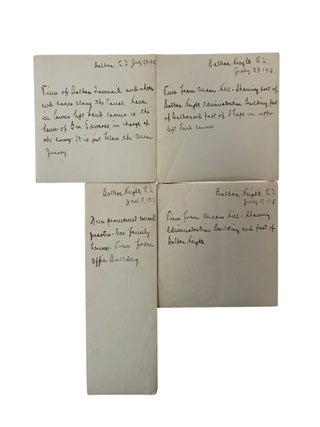 Balboa C.Z. July 27-1915
View of Balboa Tenements and others
and docks along the Canal, house
in lower left hand corner is the
house of Gen Edwards in charge of
the army. It is just below the Ancon
Quarry
Balboa Heights C.Z.
July 27-1915
View from Ancon hill - showing part of
Balboa Heights Administration Building part
of Balboa and part of Shops in upper
left hand corner
Balboa Heights C.Z.
New permanent concrete
quarters - two family
house - View from
Office Building
Balboa Heights, C.Z.
July 27-1915
View from Ancon hill - showing
Administration Building and part of
Balboa Heights